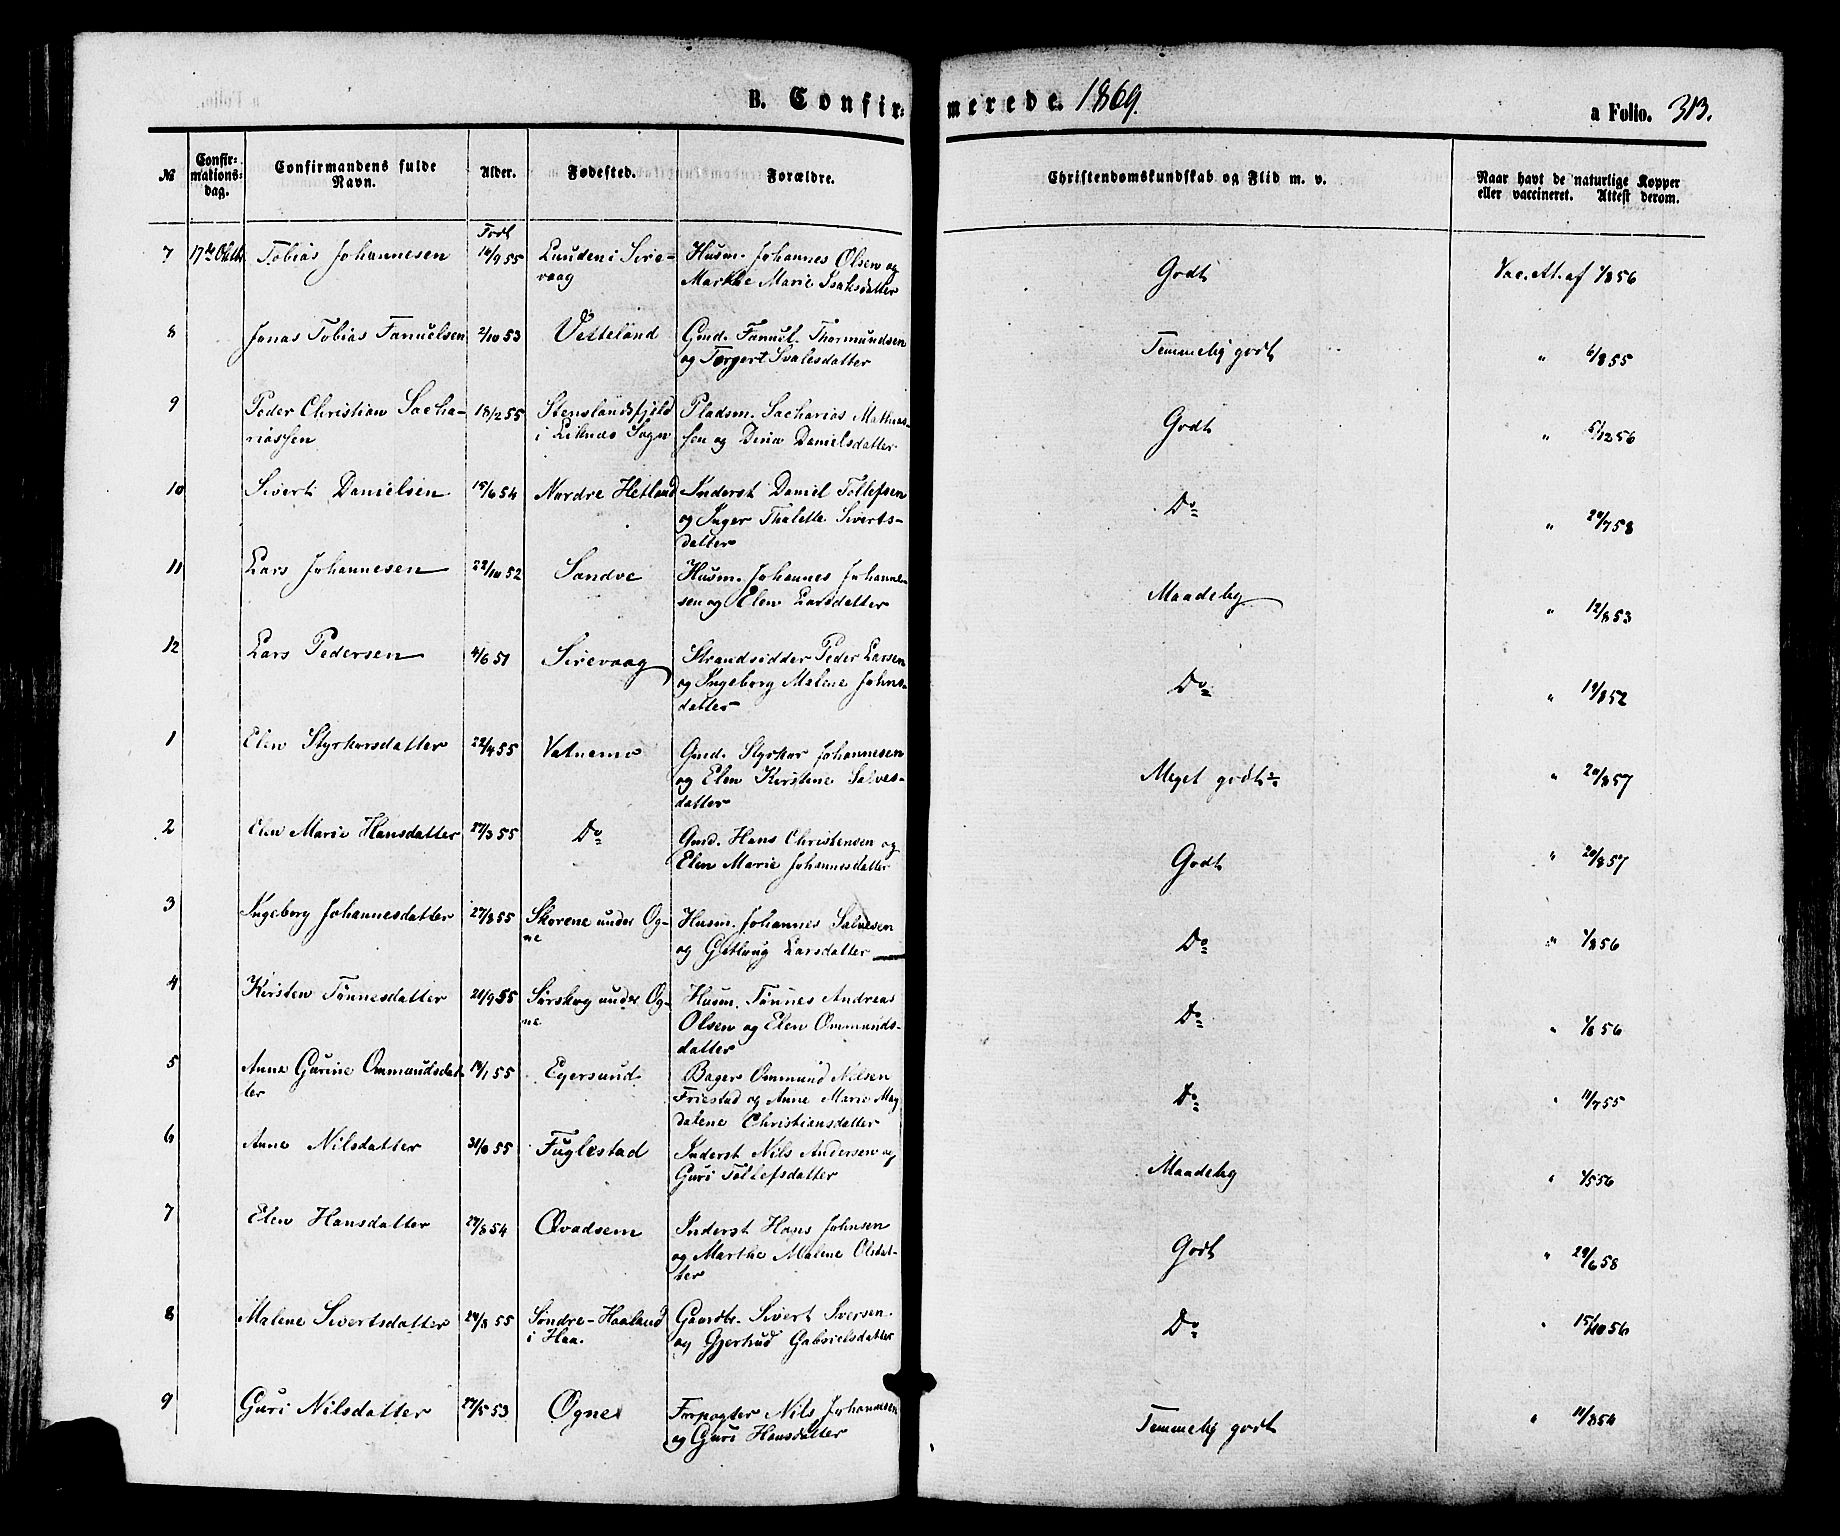 B. Confirmerede. 1869.
a Folio. 313.
№ Confirmationsdag. Confirmandens fulde Navn. Alder. Fødested. Forældre. Christendomskundskab og Flid m. v. Naar havt de naturlige Kopper eller vaccineret. Attest derom.
Født
7 17de Oktbr Tobias Johannesen 14/9 55 Lunden i Sirevaag Husm. Johannes Olsen og Marthe Marie Isaksdatter Godt Vac. At. af 1/8 56
8 Jonas Tobias Fanuelsen 2/10 53 Vetteland Gmd. Fanuel Thormundsen og Torgert Svalesdatter Temmelig godt " 6/8 55
9 Peder Christian Sachariassen 18/2 55 Stenslandsfjeld i Liknes Sogn Pladsm. Sacharias Mathiassen og Dina Danielsdatter Godt " 5/12 56
10 Sivert Danielsen 15/6 54 Nordre Hetland Inderst Daniel Tollefsen og Inger Thalette Sivertsdatter Do "
11 Lars Johannesen 22/10 52 Sandve Husm. Johannes Johannesen og Elen Larsdatter Maadelig " 12/8 53
12 Lars Pedersen 4/6 51 Sirevaag Strandsidder Peder Larsen og Ingeborg Malene Johnsdatter Do " 19/8 52
1 Elen Styrkorsdatter 22/4 55 Vatnemo Gmd. Styrkor Johannesen og Elen Kirstine Salvesdatter Meget godt " 20/8 57
2 Elen Marie Hansdatter 27/3 55 Do Gmd. Hans Christensen og Elen Marie Johannesdatter Godt " 20/8 57
3 Ingeborg Johannesdatter 27/8 55 Skorene under Ogne Husm. Johannes Salvesen og Gitlaug Larsdatter Do " 1/8 56
4 Kirsten Tönnesdatter 21/9 55 Sörskog under Ogne Husm. Tönnes Andreas Olsen og Elen Ommundsdatter Do " 1/8 56
5 Anne Gurine Ommundsdatter 14/1 55 Egersund Bager Ommund Nilsen Friestad og Anne Marie Magdalene Christiansdatter Do " 11/7 55
6 Anne Nilsdatter Fuglestad Inderst Nils Andersen og Guri Tollefsdatter Maadelig " 1/5 56
7 Elen Hansdatter 27/8 54 Qvadsem Inderst Hans Johnsen og Marthe Malene Olsdatter Godt " 29/6 58
8 Malene Sivertsdatter 24/8 55 Söndre-Haaland i Haa. Gaardbr. Sivert Iversen og Gjertrud Gabrielsdatter Do " 15/10 56
9 Guri Nilsdatter 27/5 53 Ogne Forpagter Nils Johannesen og Guri Hansdatter Temmelig godt " 11/8 54